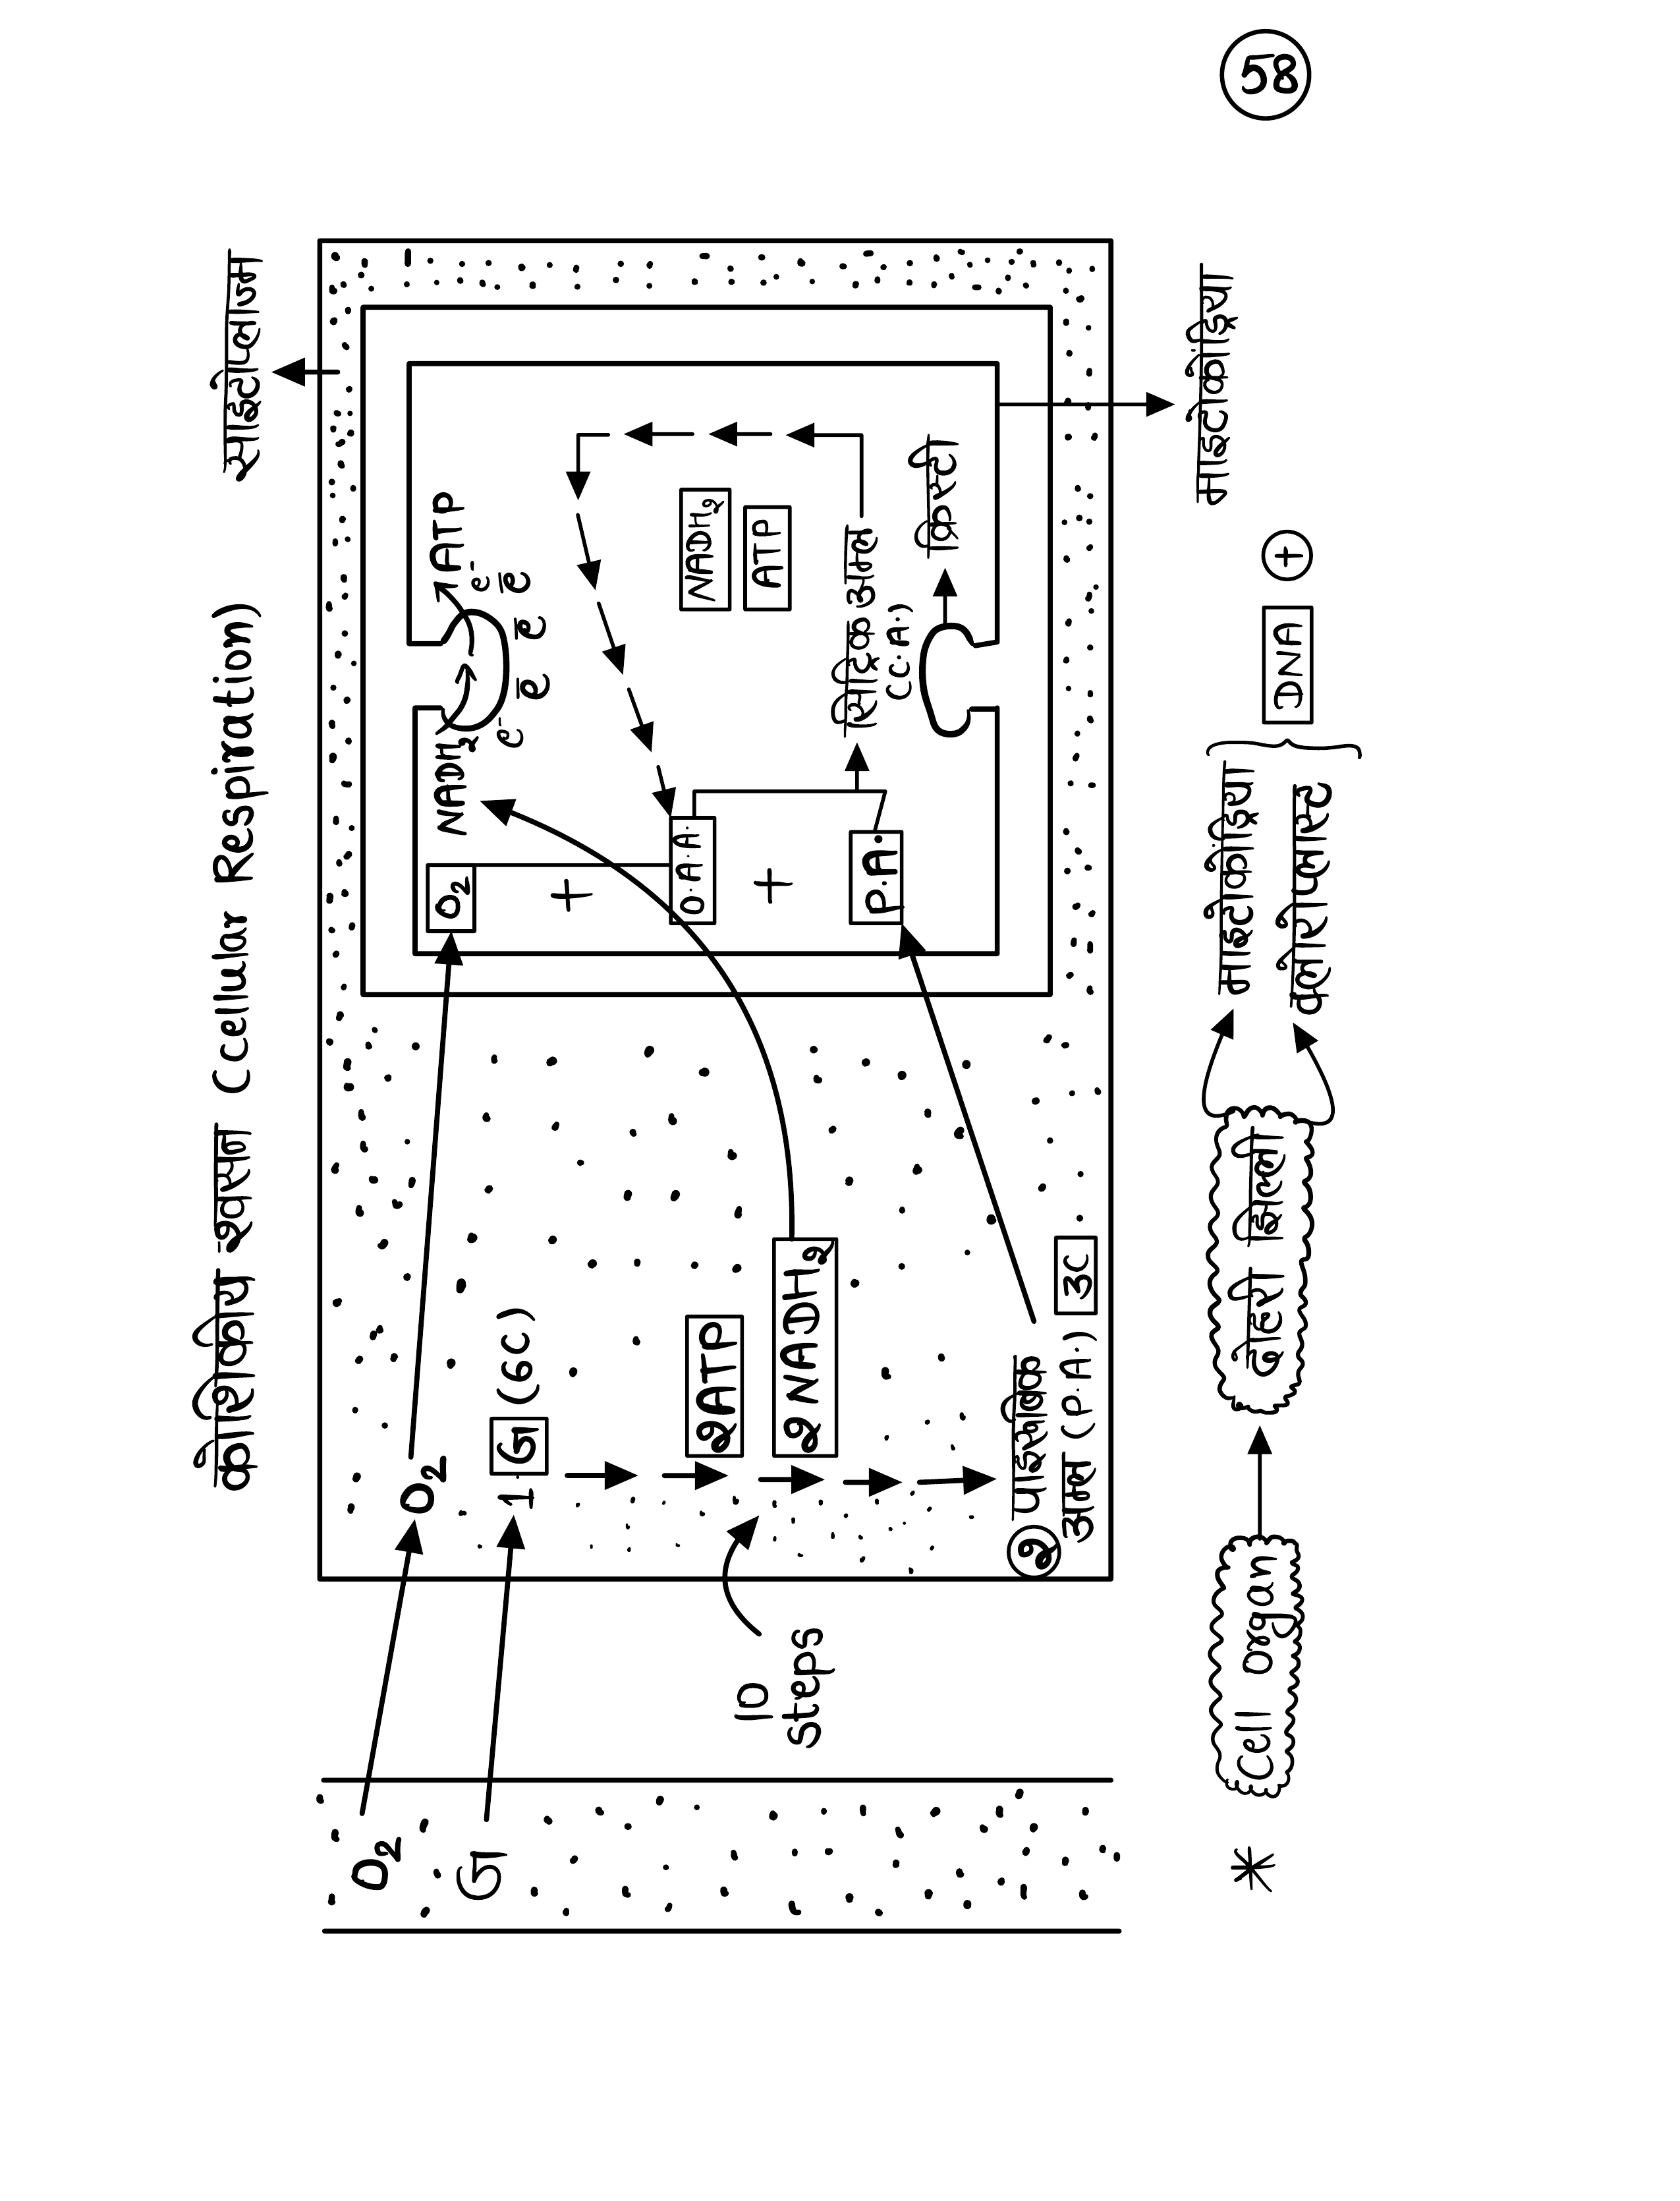 58
कोशिकीय श्वसन (Cellular Respiration)
साइटोप्लाज्म
O2
G
O2
1 G (6C)
10
Steps
2ATP
2 NADH2
2 पाइरुविक
अम्ल (P.A.) 3C
O2
+
O.A.A.
+
P.A.
NADH2
ATP
e⁻ e⁻ e⁻ e⁻ e⁻
NADH2
ATP
सिट्रिक अम्ल
(C.A.)
क्रिस्टी
माइटोकॉन्ड्रिया
* Cell organ → दोहरी झिल्ली
माइटोकॉन्ड्रिया
क्लोरोप्लास्ट
DNA +